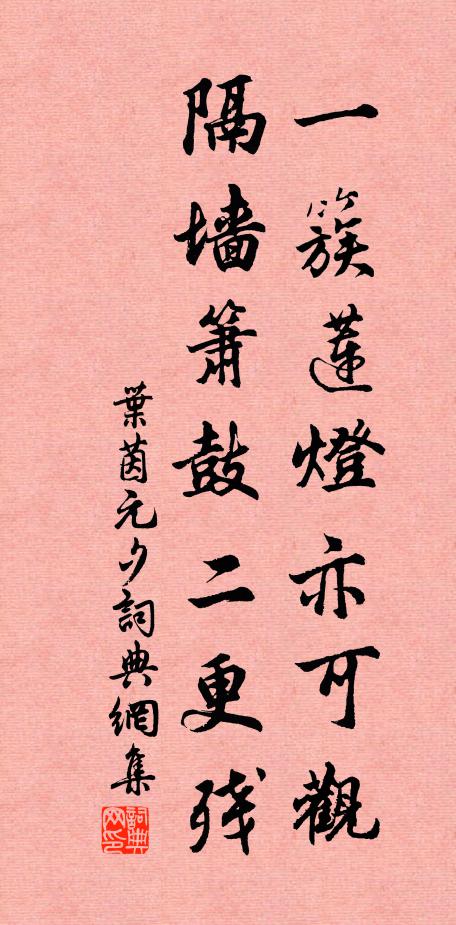 一簇蓮燈亦可觀
隔墻簫鼓二更残
葉茵元夕詞典網集
詞典网印